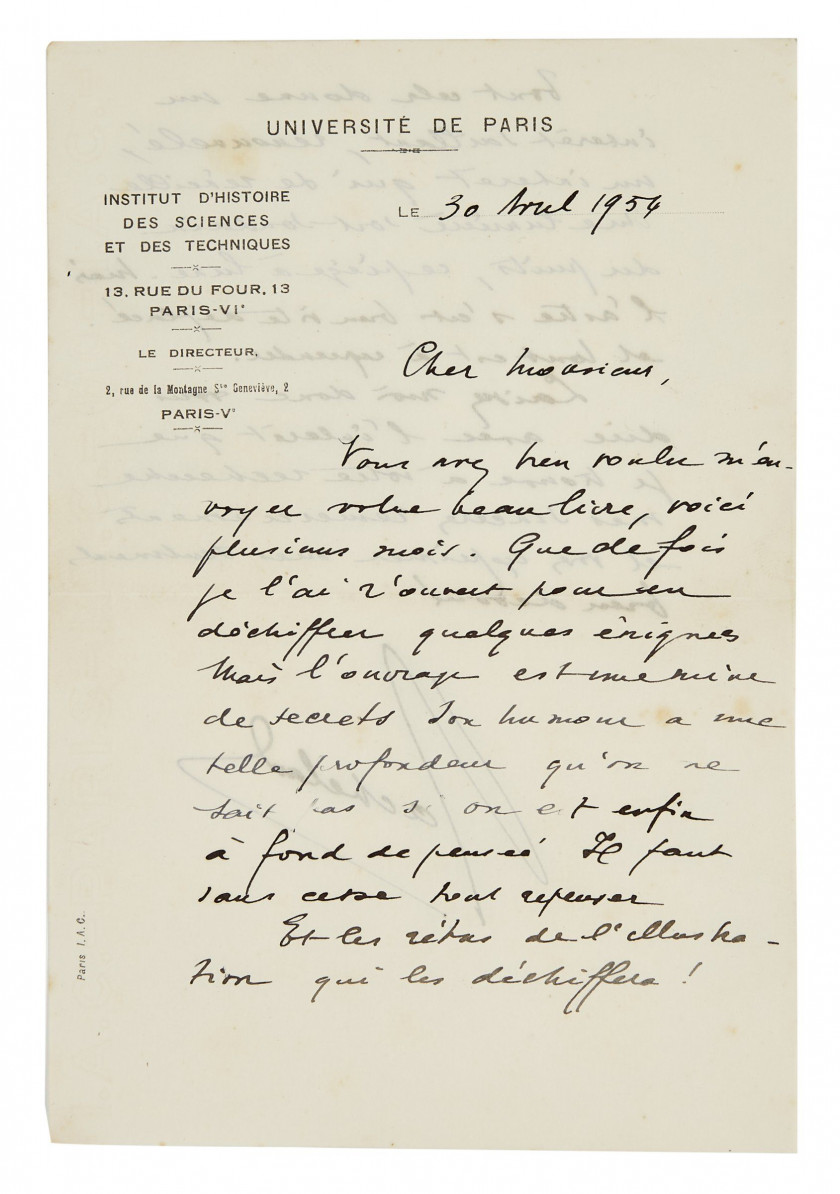 UNIVERSITÉ DE PARIS
INSTITUT D'HISTOIRE
DES SCIENCES
ET DES TECHNIQUES
13, RUE DU FOUR, 13
PARIS-VIe
LE DIRECTEUR,
2, rue de la Montagne Ste Geneviève, 2
PARIS-Ve
LE 30 Avril 1954
Cher Monsieur,
Vous avez bien voulu m'en-
voyer votre beau livre, voici
plusieurs mois. Que de fois
je l'ai r'ouvert pour en
déchiffrer quelques énigmes
Mais l'ouvrage est une mine
de secrets Son humour a une
telle profondeur qu'on ne
sait pas si on est enfin
à fond de pensée Il faut
sans cesse tout repenser
Et les rébus de l'illustra-
tion qui les déchiffrera !
Paris I. A. C.